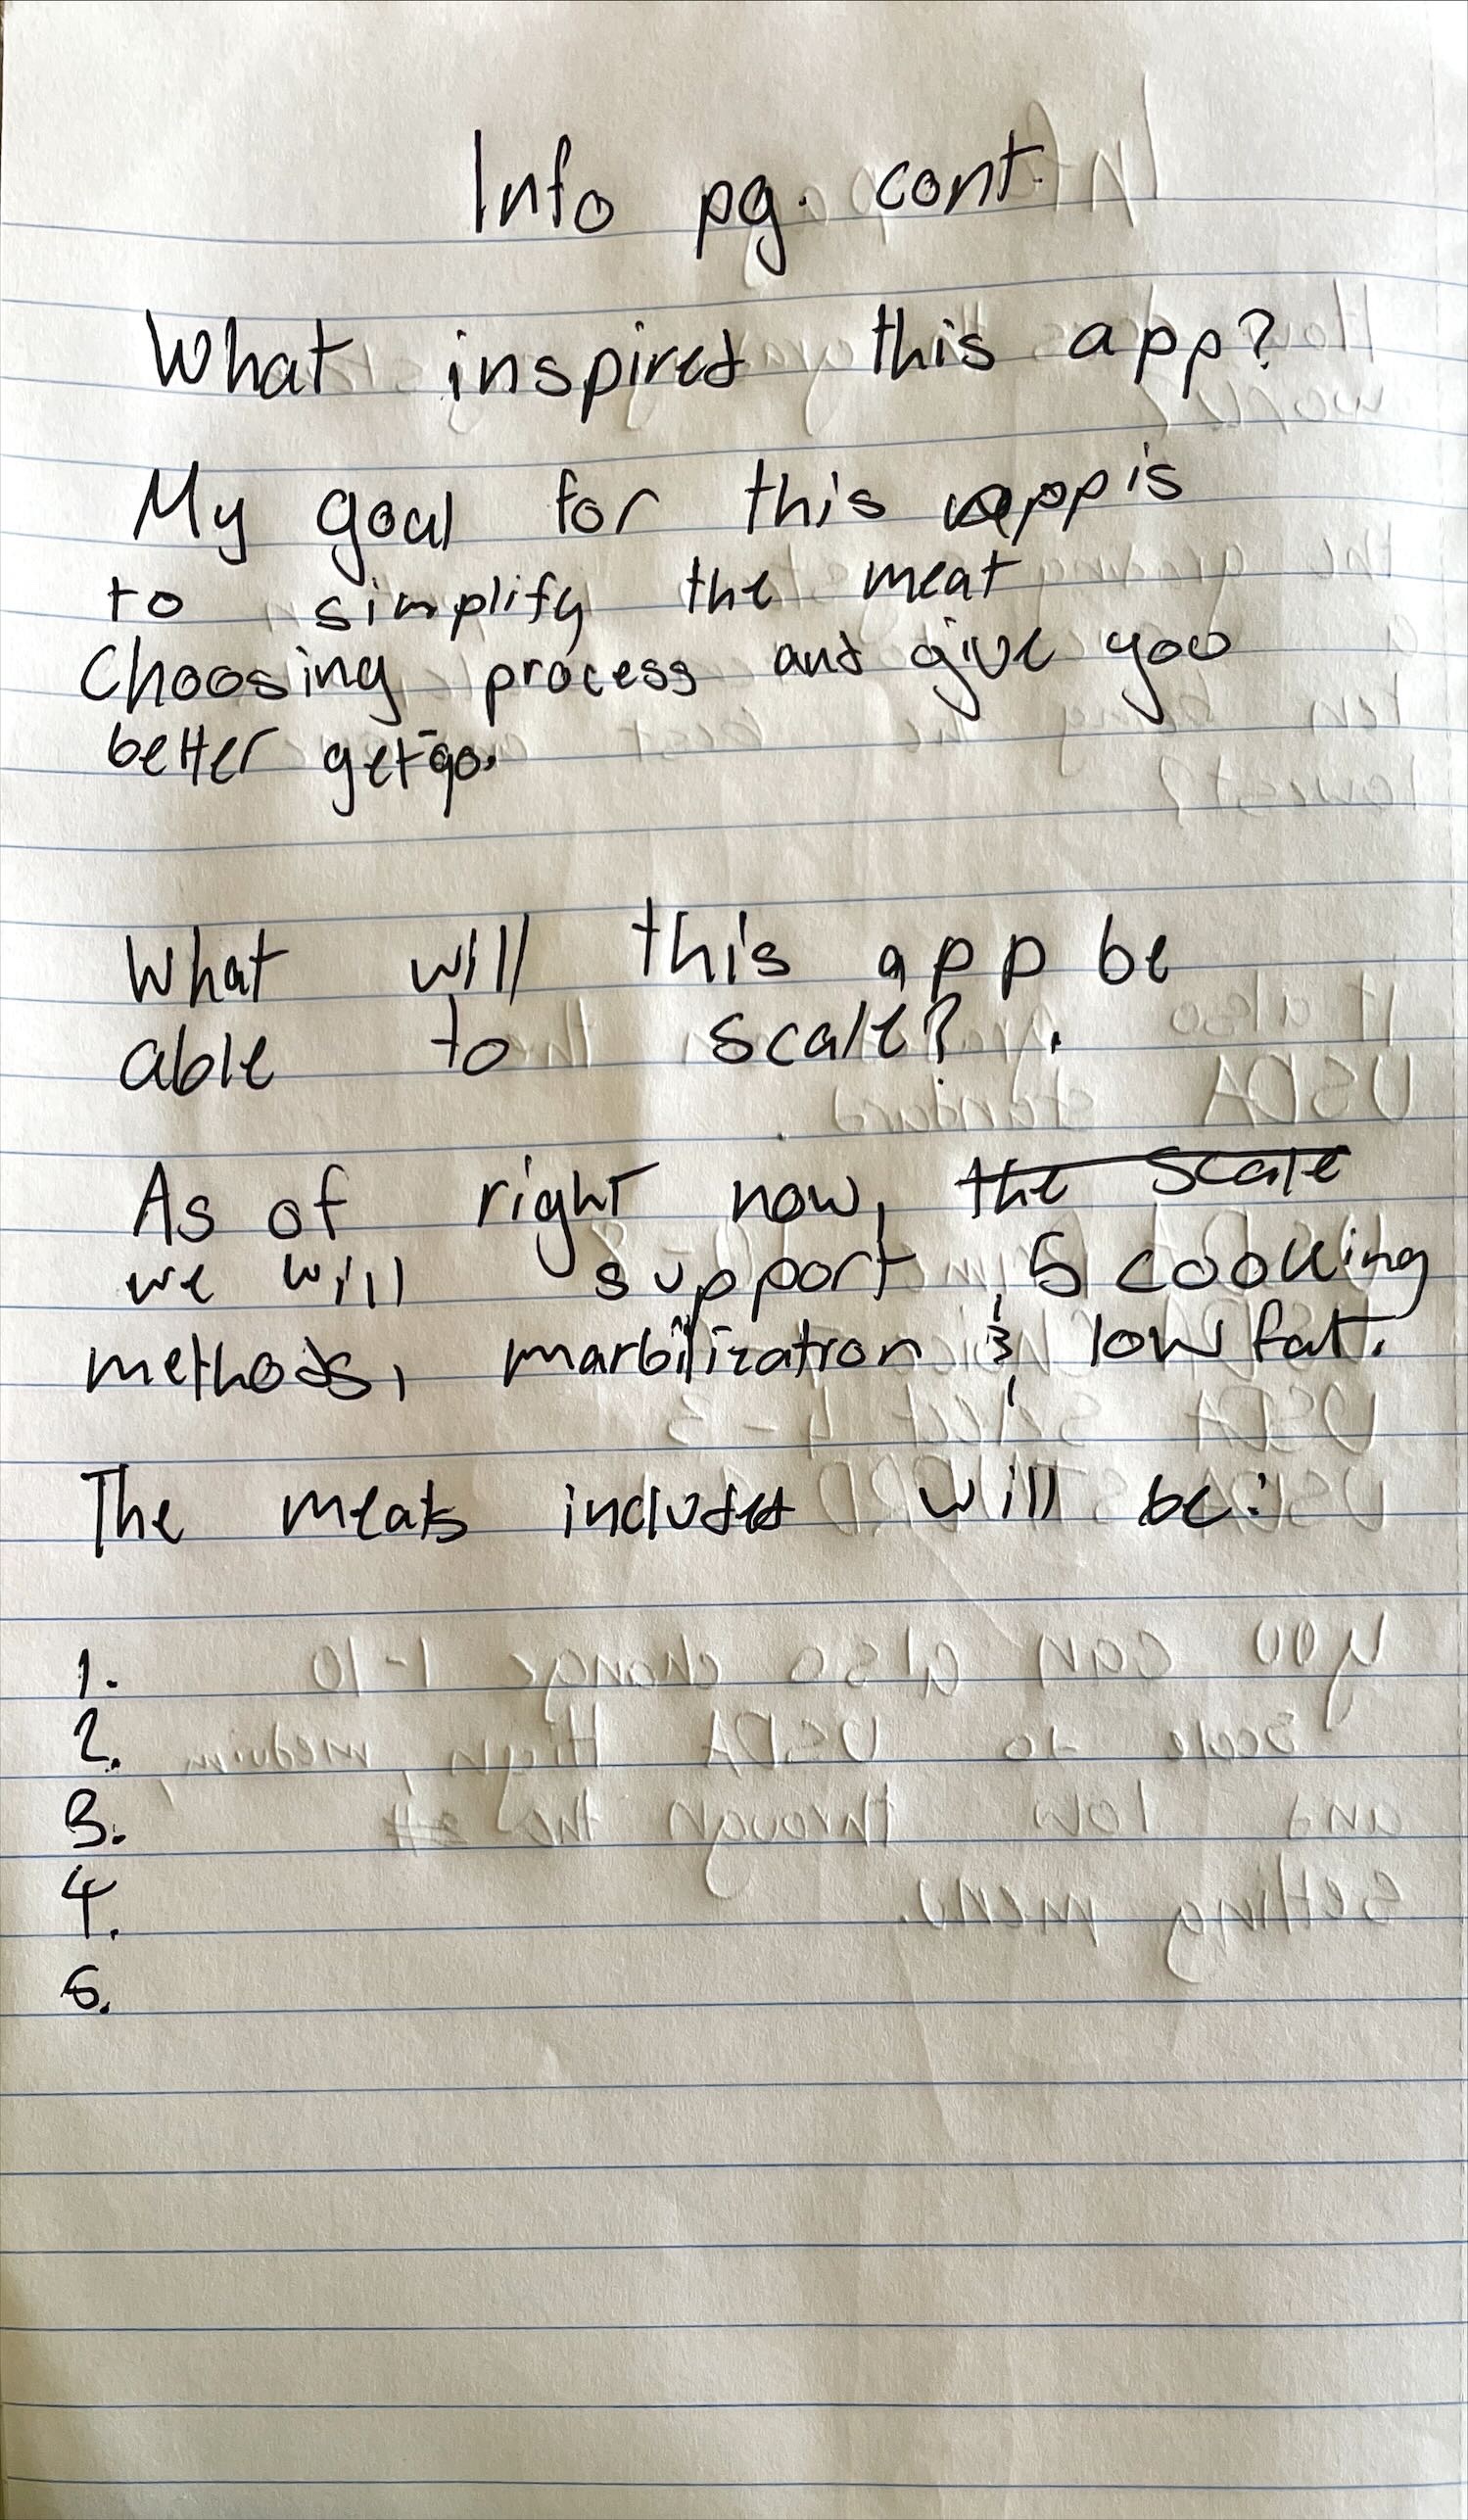 Info pg. cont.
What inspired this app?
My goal for this app is
to simplify the meat
Choosing process and give you
better get-go.
What will this app be
able to scale?
As of right now, the scale
we will support 5 cooking
methods, marbilization & low fat.
The meats included will be:
1.
2.
3.
4.
5.